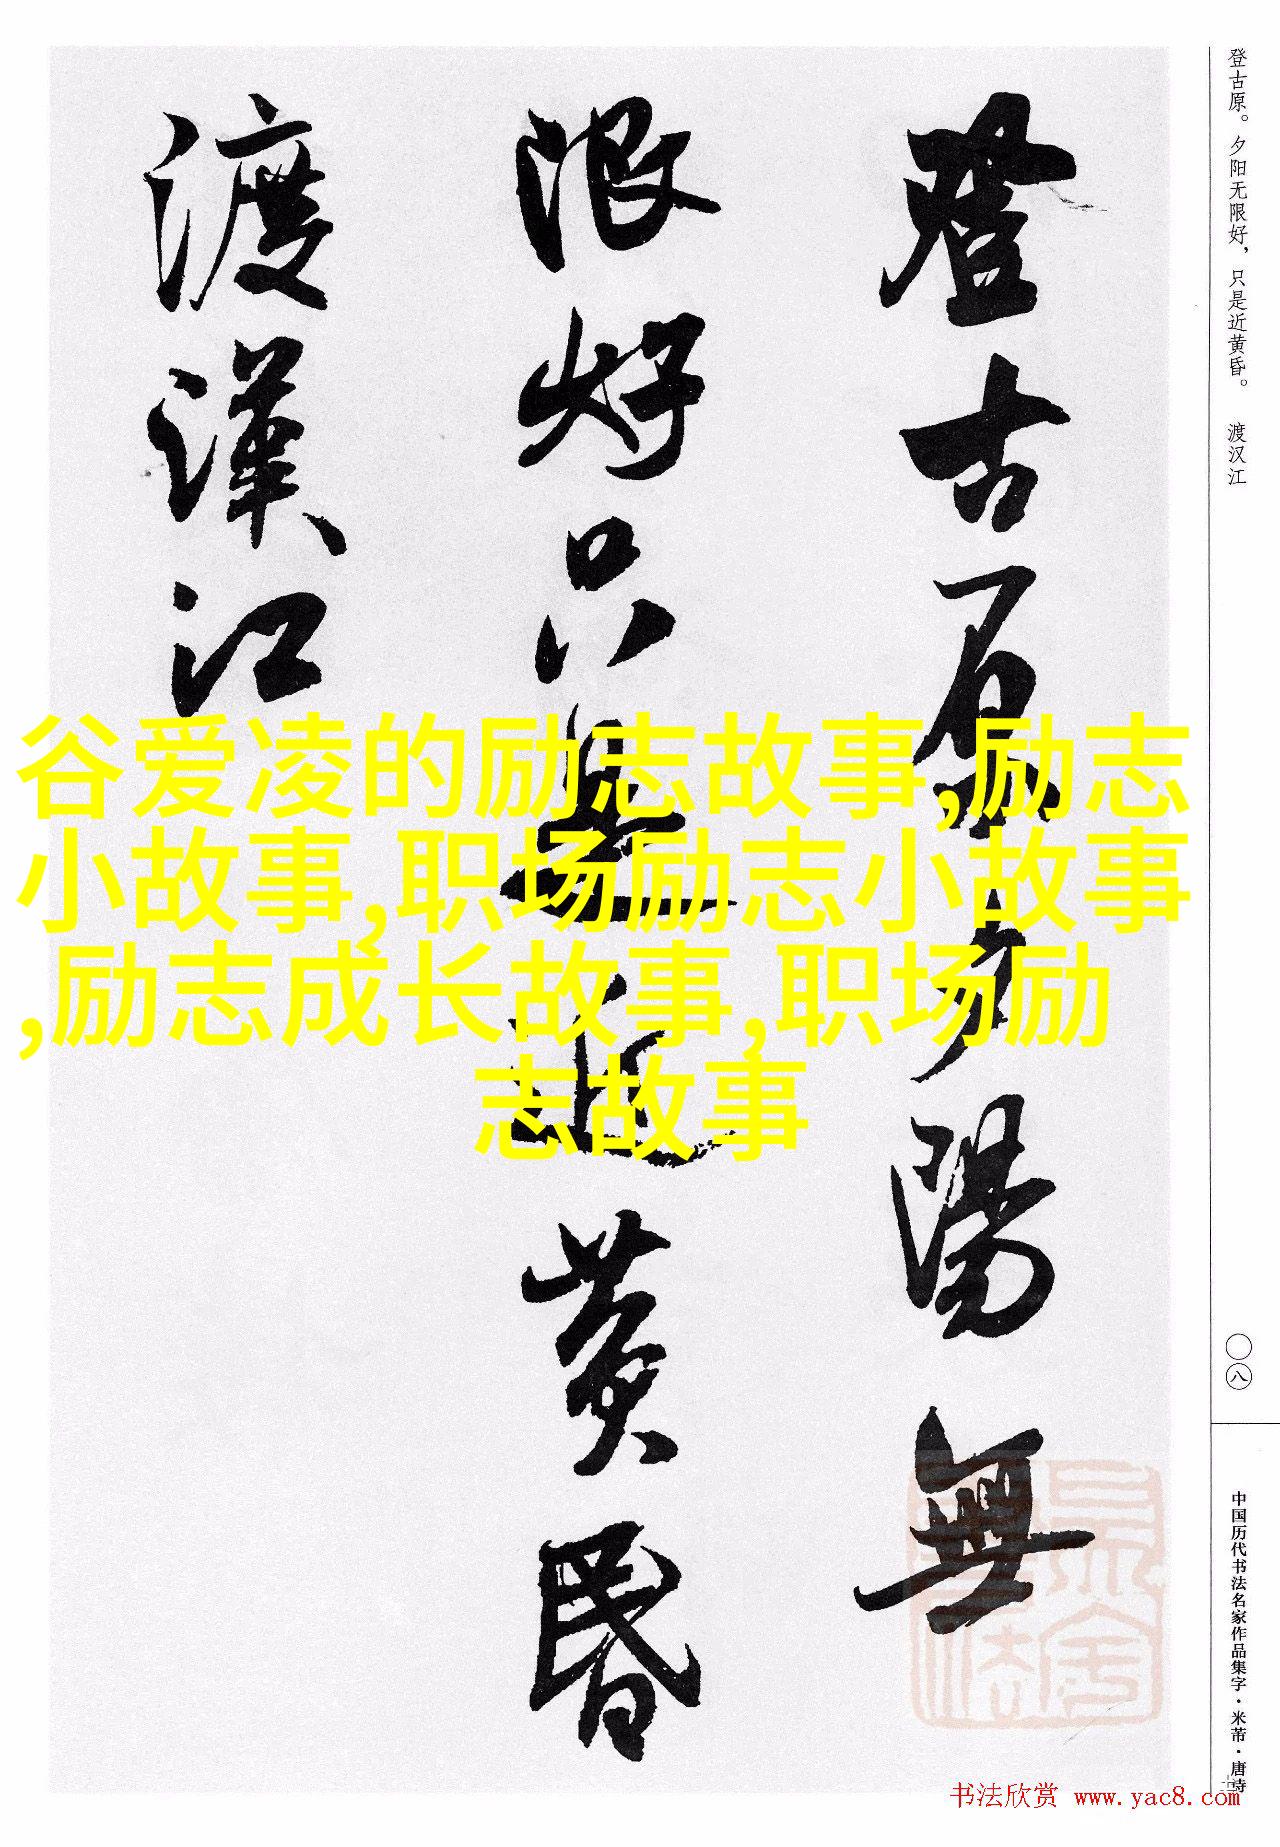 登古原夕陽無
限好只是近黄昏
渡漢江
登古原。夕阳无限好，只是近黄昏。 渡汉江
〇八
中国历代书法名家作品集字·米芾·唐诗
谷爱凌的励志故事,励志
小故事,职场励志小故事
,励志成长故事,职场励
志故事
书法欣赏 www.yac8.com